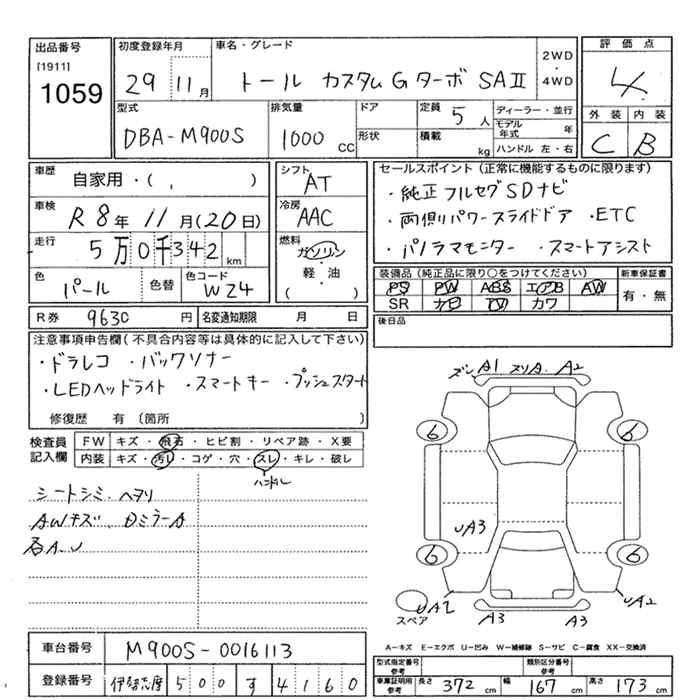 出品番号
[1911]
1059
初度登録年月
29 11月
車名・グレード
トール カスタムGターボ SAⅡ
2WD
・
4WD
評価点
4
外装 内装
C B
型式
DBA-M900S
排気量
1000 CC
ドア
形状
定員 5 人
積載 kg
ディーラー・並行
モデル年式 年
ハンドル 左・右
車歴
自家用・( )
車検
R8年 11月(20日)
走行
5万0千342km
色
パール
色替
色コード
W24
シフト
AT
冷房
AAC
燃料
ガソリン
・
軽・油
( )
R券 9630 円
名変通知期限 月 日
セールスポイント(正常に機能するものに限ります)
・純正フルセグSDナビ
・両側パワースライドドア ・ETC
・パノラマモニター ・スマートアシスト
装備品(純正品に限り○をつけてください)
PS PW ABS エアB AW
SR ナビ TV カワ
新車保証書
有・無
後日品
注意事項申告欄(不具合内容等は具体的に記入して下さい)
・ドラレコ ・バックソナー
・LEDヘッドライト ・スマートキー ・プッシュスタート
修復歴 有〔箇所 〕
検査員
記入欄
FW キズ・飛石・ヒビ割・リペア跡・X要
内装 キズ・汚れ・コゲ・穴・スレ・キレ・破レ
ハンドル
シートシミ・ヘタリ
AWキズ、DミラーA
各A.U
A1 スリA A2
6 6
UA3
6 6
スペア
UA2 UA2
A3 A3
A-キズ E-エクボ U-凹み W-補修跡 S-サビ C-腐食 XX-交換済
車台番号 M900S-0016113
登録番号 伊勢志摩 500 す 4160
型式指定番号参考
類別区分番号参考
車庫証明用参考 長さ 372 cm 幅 167 cm 高さ 173 cm